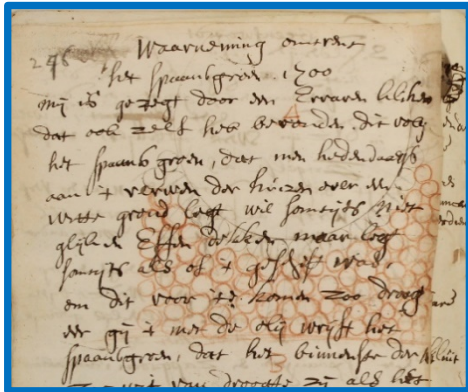 246 Waarneming omtrent
het spaansgroen. 1700
mij is gezegt door een Ervaren
dat ook zelf heb bevonden dit voly
het spaans groen, dat men hedendaags
aan 't verwen der huizen over een
witte grond legt wil somtijts Niet
glijk en Effen dekken maar legt
somtijts als of 't geschift waar
om dit voor te komen zoo droog
eer gij 't met de olij wrijft het
spaansgroen, dat het binnenste der
wit van droogte zij als het